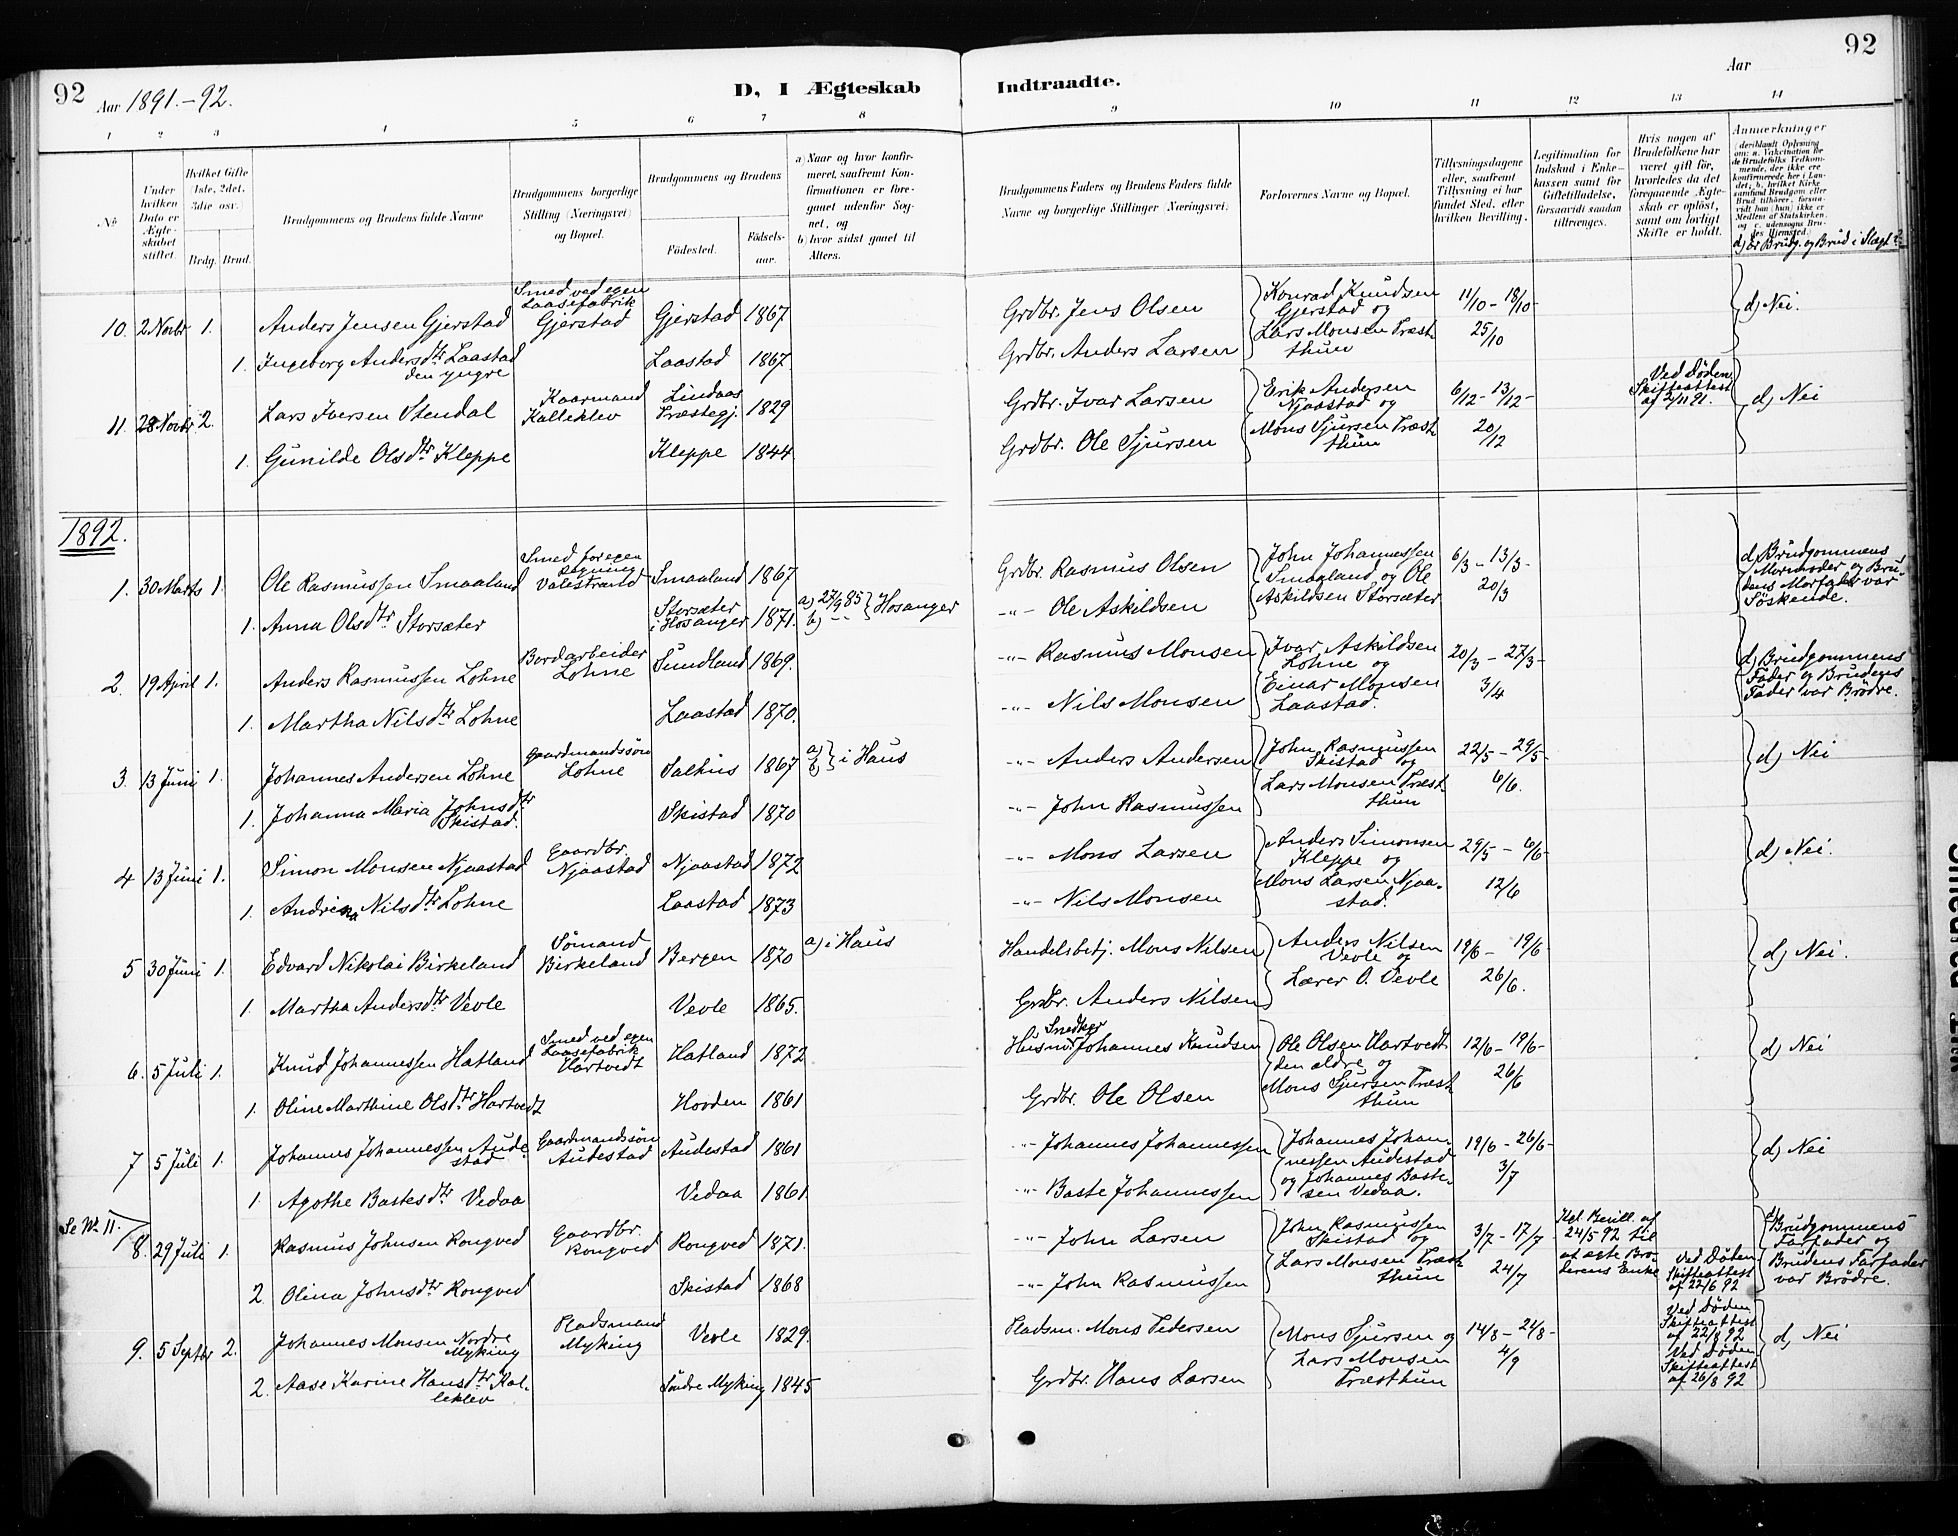 92
Aar 1891.-92.
D, I Ægteskab
Indtraadte.
Aar
92
1 2 3 4 5 6 7 8 9 10 11 12 13 14
№
Under hvilken Dato er Ægteskabet stiftet.
Hvilket Gifte (1ste, 2det, 3die osv.)
Brdg.
Brud.
Brudgommens og Brudens fulde Navne
Brudgommens borgerlige Stilling (Næringsvei) og Bopæl.
Brudgommens og Brudens
Födested.
Födselsaar.
a) Naar og hvor konfirmeret, saafremt Konfirmationen er foregaaet udenfor Sognet, og
b) hvor sidst gaaet til Alters.
Brudgommens Faders og Brudens Faders fulde Navne og borgerlige Stillinger (Næringsvei).
Forlovernes Navne og Bopæl.
Tillysningsdagene eller, saafremt Tillysning ei har fundet Sted, efter hvilken Bevilling.
Legitimation for Indskud i Enkekassen samt for Giftetilladelse, forsaavidt saadan tiltrænges.
Hvis nogen af Brudefolkene har været gift før, hvorledes da det foregaaende Ægteskab er opløst, samt om lovligt Skifte er holdt.
Anmærkninger
(deriblandt Oplysning om: a. Vakcination for de Brudefolks Vedkommende, der ikke ere konfirmerede her i Landet; b. hvilket Kirkesamfund Brudgom eller Brud tilhörer, forsaavidt han (hun) ikke er Medlem af Statskirken, og c. udensogns Brudes Hjemsted.)
d) Er Brudg. og Brud i Slægt?
10. 2 Novbr 1. Anders Jensen Gjerstad Smed ved egen Laasefabrik Gjerstad Gjerstad 1867 Grdbr. Jens Olsen Konrad Knudsen Gjerstad og 11/10 - 18/10- d) Nei.
1. Ingeborg Andersdtr Laastad den yngre Laastad 1867 Grdbr. Anders Larsen Lars Monsen Præstthun 25/10
11. 28 Novbr 2. Lars Iversen Stendal Kaarmand Kalleklev Lindaas Præstegj. 1829 Grdbr. Ivar Larsen Erik Andersen Njaastad og 6/12 - 13/12- Ved Døden Skifteattest af 2/11 91. d) Nei
1. Gunilde Olsdtr Kleppe Kleppe 1844 Grdbr. Ole Sjursen Mons Sjursen Præstthun 20/12
1892.
1. 30 Marts 1. Ole Rasmussen Smaaland Smed for egen Regning Valestrand Smaaland 1867 Grdbr. Rasmus Olsen John Johannessen Smaaland og Ole 6/3 - 13/3- d) Brudgommens Mormoder og Brudens Morfader var Söskende.
1. Anna Olsdtr Storsæter Storsæter i Hosanger 1871. a) 27/9 85 b) -"- Hosanger -"- Ole Askildsen Askildsen Storsæter 20/3
2. 19 April 1. Anders Rasmussen Lohne Bordarbeider Lohne Sundland 1869. -"- Rasmus Monsen Ivar Askildsen Lohne og 20/3 - 27/3- d) Brudgommens Fader og Brudens Fader var Brödre.
1. Martha Nilsdtr Lohne Laastad 1870. -"- Nils Monsen Einar Monsen Laastad. 3/4
3. 13 Juni 1. Johannes Andersen Lohne Gaardmandssön Lohne Salhus 1867 a) b) i Haus -"- Anders Andersen John Rasmussen Skistad og 22/5 - 29/5- d) Nei
1. Johanna Maria Johnsdtr Skistad. Skistad 1870 -"- John Rasmussen Lars Monsen Præstthun 6/6.
4 13 Juni 1. Simon Monsen Njaastad Gaardbr. Njaastad Njaastad 1872 -"- Mons Larsen Anders Simonsen Kleppe og 29/5 - 6/6- d) Nei.
1. Andrina Nilsdtr Lohne Laastad 1873 -"- Nils Monsen Mons Larsen Njaastad. 12/6
5 30 Juni 1. Edvard Nikolai Birkeland Sömand Birkeland Bergen 1870 a) i Haus Handelsbetj. Mons Nilsen Anders Nilsen Vevle og 19/6 - 19/6- d) Nei.
1. Martha Andersdtr Vevle Vevle 1865. Grdbr. Anders Nilsen Lærer O. Vevle 26/6.
6. 5 Juli 1. Knud Johannessen Hatland Smed ved egen Laasefabrik Hartvedt Hatland 1872 Husm. Snedker Johannes Knudsen Ole Olsen Hartvedt den ældre og 12/6 - 19/6- d) Nei
1. Oline Marthine Olsdtr Hartvedt Hovden 1861 Grdbr. Ole Olsen Mons Sjursen Præstthun 26/6
7 5 Juli 1. Johannes Johannessen Audestad Gaardmandssön Audestad Audestad 1861 -"- Johannes Johannessen Johannes Johannessen Audestad 19/6 - 26/6- d) Nei
1. Agothe Bastesdtr Vedaa Vedaa 1861. -"- Baste Johannessen og Johannes Bastesen Vedaa. 3/7
Se № 11.
8. 29 Juli 1. Rasmus Johnsen Rongved Gaardbr. Rongved Rongved 1871. -"- John Larsen John Rasmussen Skistad og 3/7 - 17/7 - Kgl. Bevill. af 24/5 92 til at ægte Broderens Enke d) Brudgommens Farfader og Brudens Farfader var Brödre.
2. Olina Johnsdtr Rongved Skistad 1868 -"- John Rasmussen Lars Monsen Præstthun 24/7 Ved Døden Skifteattest af 22/6 92
9. 5 Septbr 2. Johannes Monsen Nordre Myking Pladsmand Myking Vevle 1829. Pladsm. Mons Pedersen Mons Sjursen og 14/8 - 21/8- Ved Døden Skifteattest af 22/8 92 d) Nei
2. Aase Karine Hansdtr Kalleklev Söndre Myking 1845 Grdbr. Hans Larsen Lars Monsen Præstthun 4/9 Ved Døden Skifteattest af 26/8 92